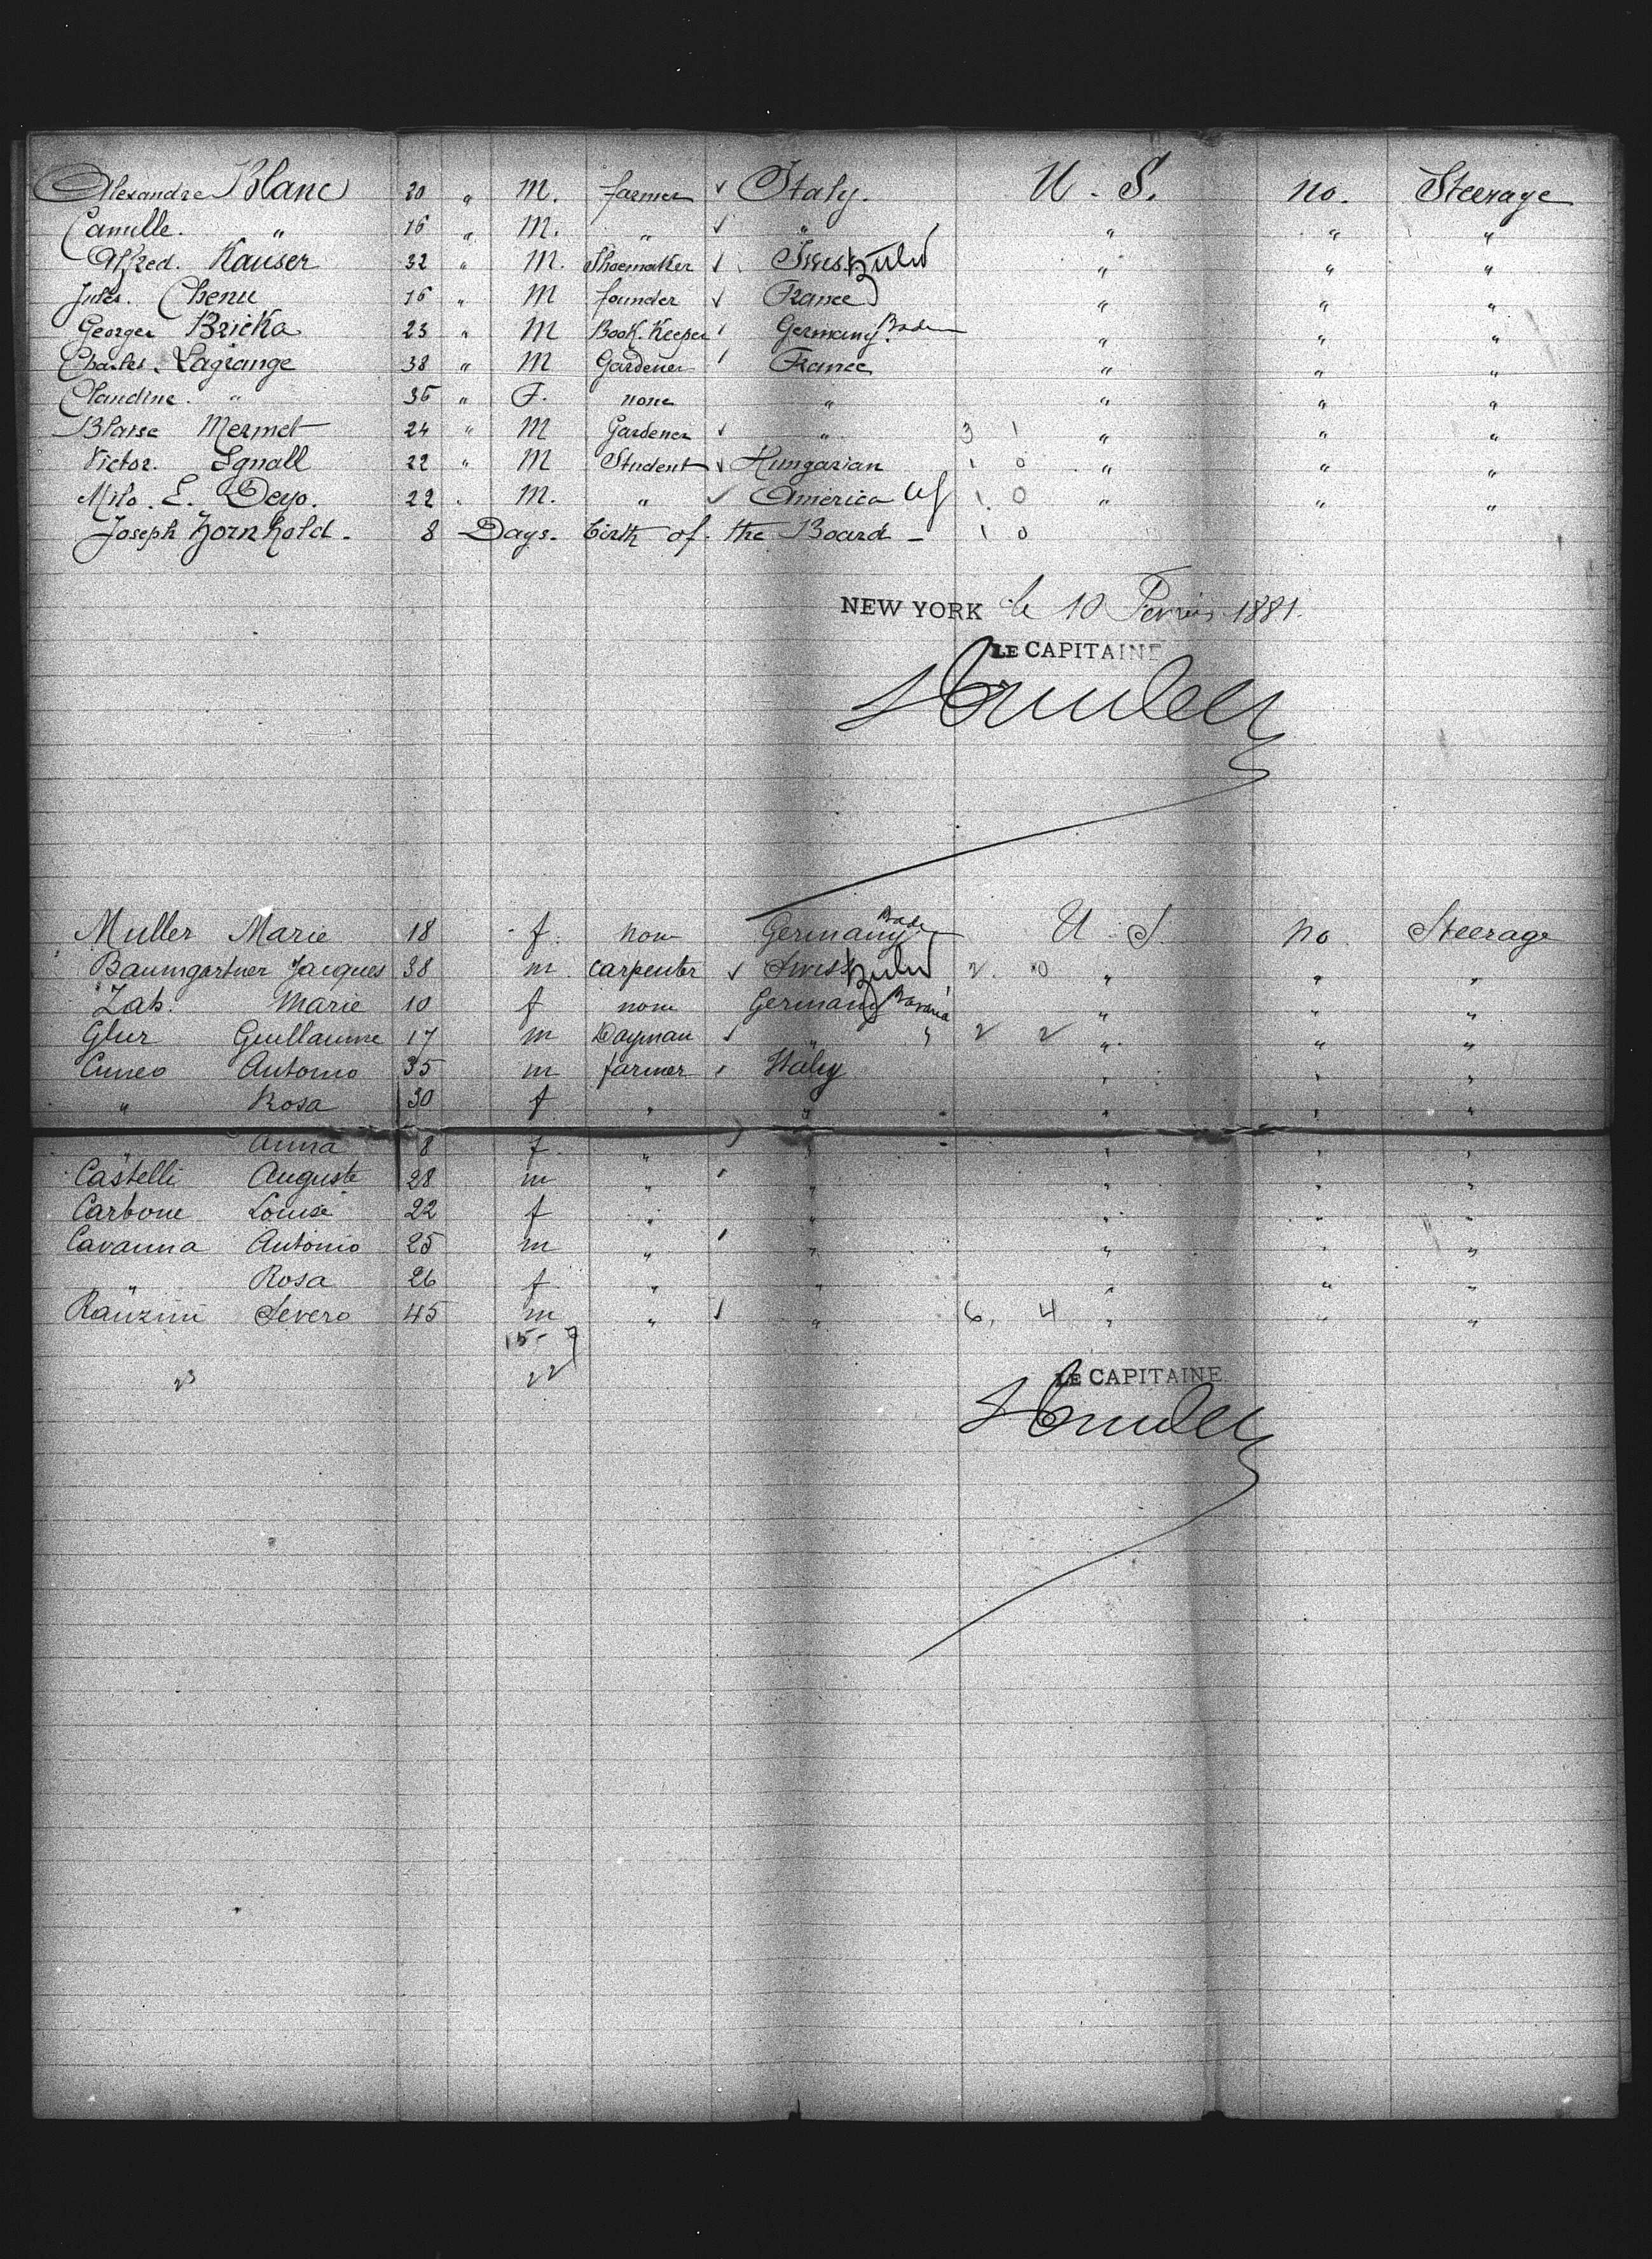 Alexandre Blanc 20 " M. farmer Italy. U. S. no. Steerage
Camille. " 16 " M. " " " " "
Alfred. Kauser 32 " M. Shoemaker Swiss " " "
Jules. Chenu 16 " M founder France " " "
Georges Bricka 23 " M Book.Keeper Germany. Baden " " "
Charles. Lagrange 38 " M Gardener France " " "
Claudine. " 36 " F. none " " " "
Blaise Mermet 24 " M Gardener " 3 1 " " "
Victor. Ignall 22 " M Student Hungarian 1 0 " " "
Milo. E. Deyo. 22 . M. " America 1 0 " " "
Joseph Hornhold. 8 Days. birth of. the Board - 1 0
NEW YORK le 10 Fevrier 1881.
LE CAPITAINE
Muller Marie 18 f. none Germany Baden U S. no Steerage
Baumgartner Jacques 38 m carpenter Swiss 2. 0 " " "
Zah. Marie 10 f none Germany Bavaria " " "
Glur Guillaume 17 m Dayman " 2 2 " " "
Cuneo Antonio 35 m farmer Italy " " "
" Rosa 30 f " " " " "
" Anna 8 f. " " " " "
Castelli Auguste 28 m " " " " "
Carbone Louise 22 f " " " " "
Cavanna Antonio 25 m " " " " "
" Rosa 26 f " " " " "
Ranzini Severo 45 m " " 6, 4 " " "
15- 7
23 22
LE CAPITAINE